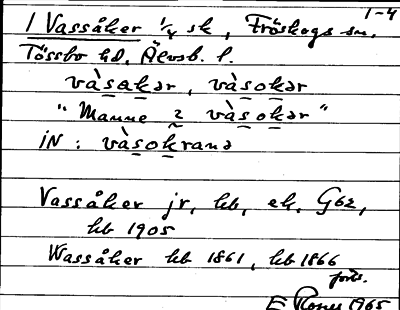 1-4
1 Vassåker 1/4 sk, Fröskogs sn.
Tössbo hd. Älvsb. l.
vàsakər, vàsokər
"Manne i vàsokər"
iN: vàsokrana
Vassåker jr, kb, ek. G62,
kb 1905
Wassåker kb 1861, kb 1866
forts.
E 1965